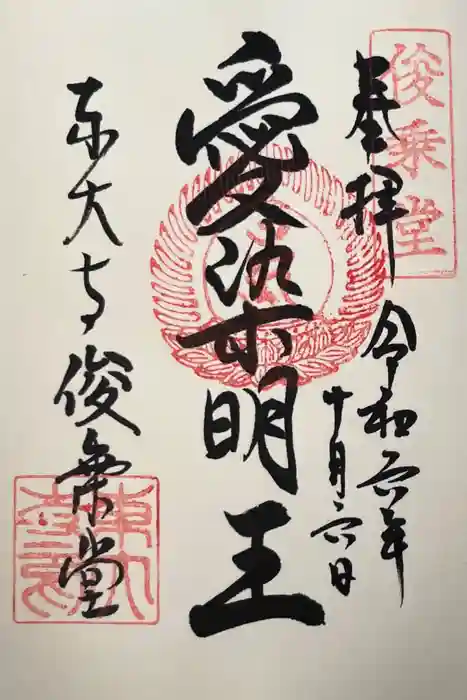 俊乗堂
奉拝
令和六年
十月六日
愛染明王
東大寺 俊乗堂